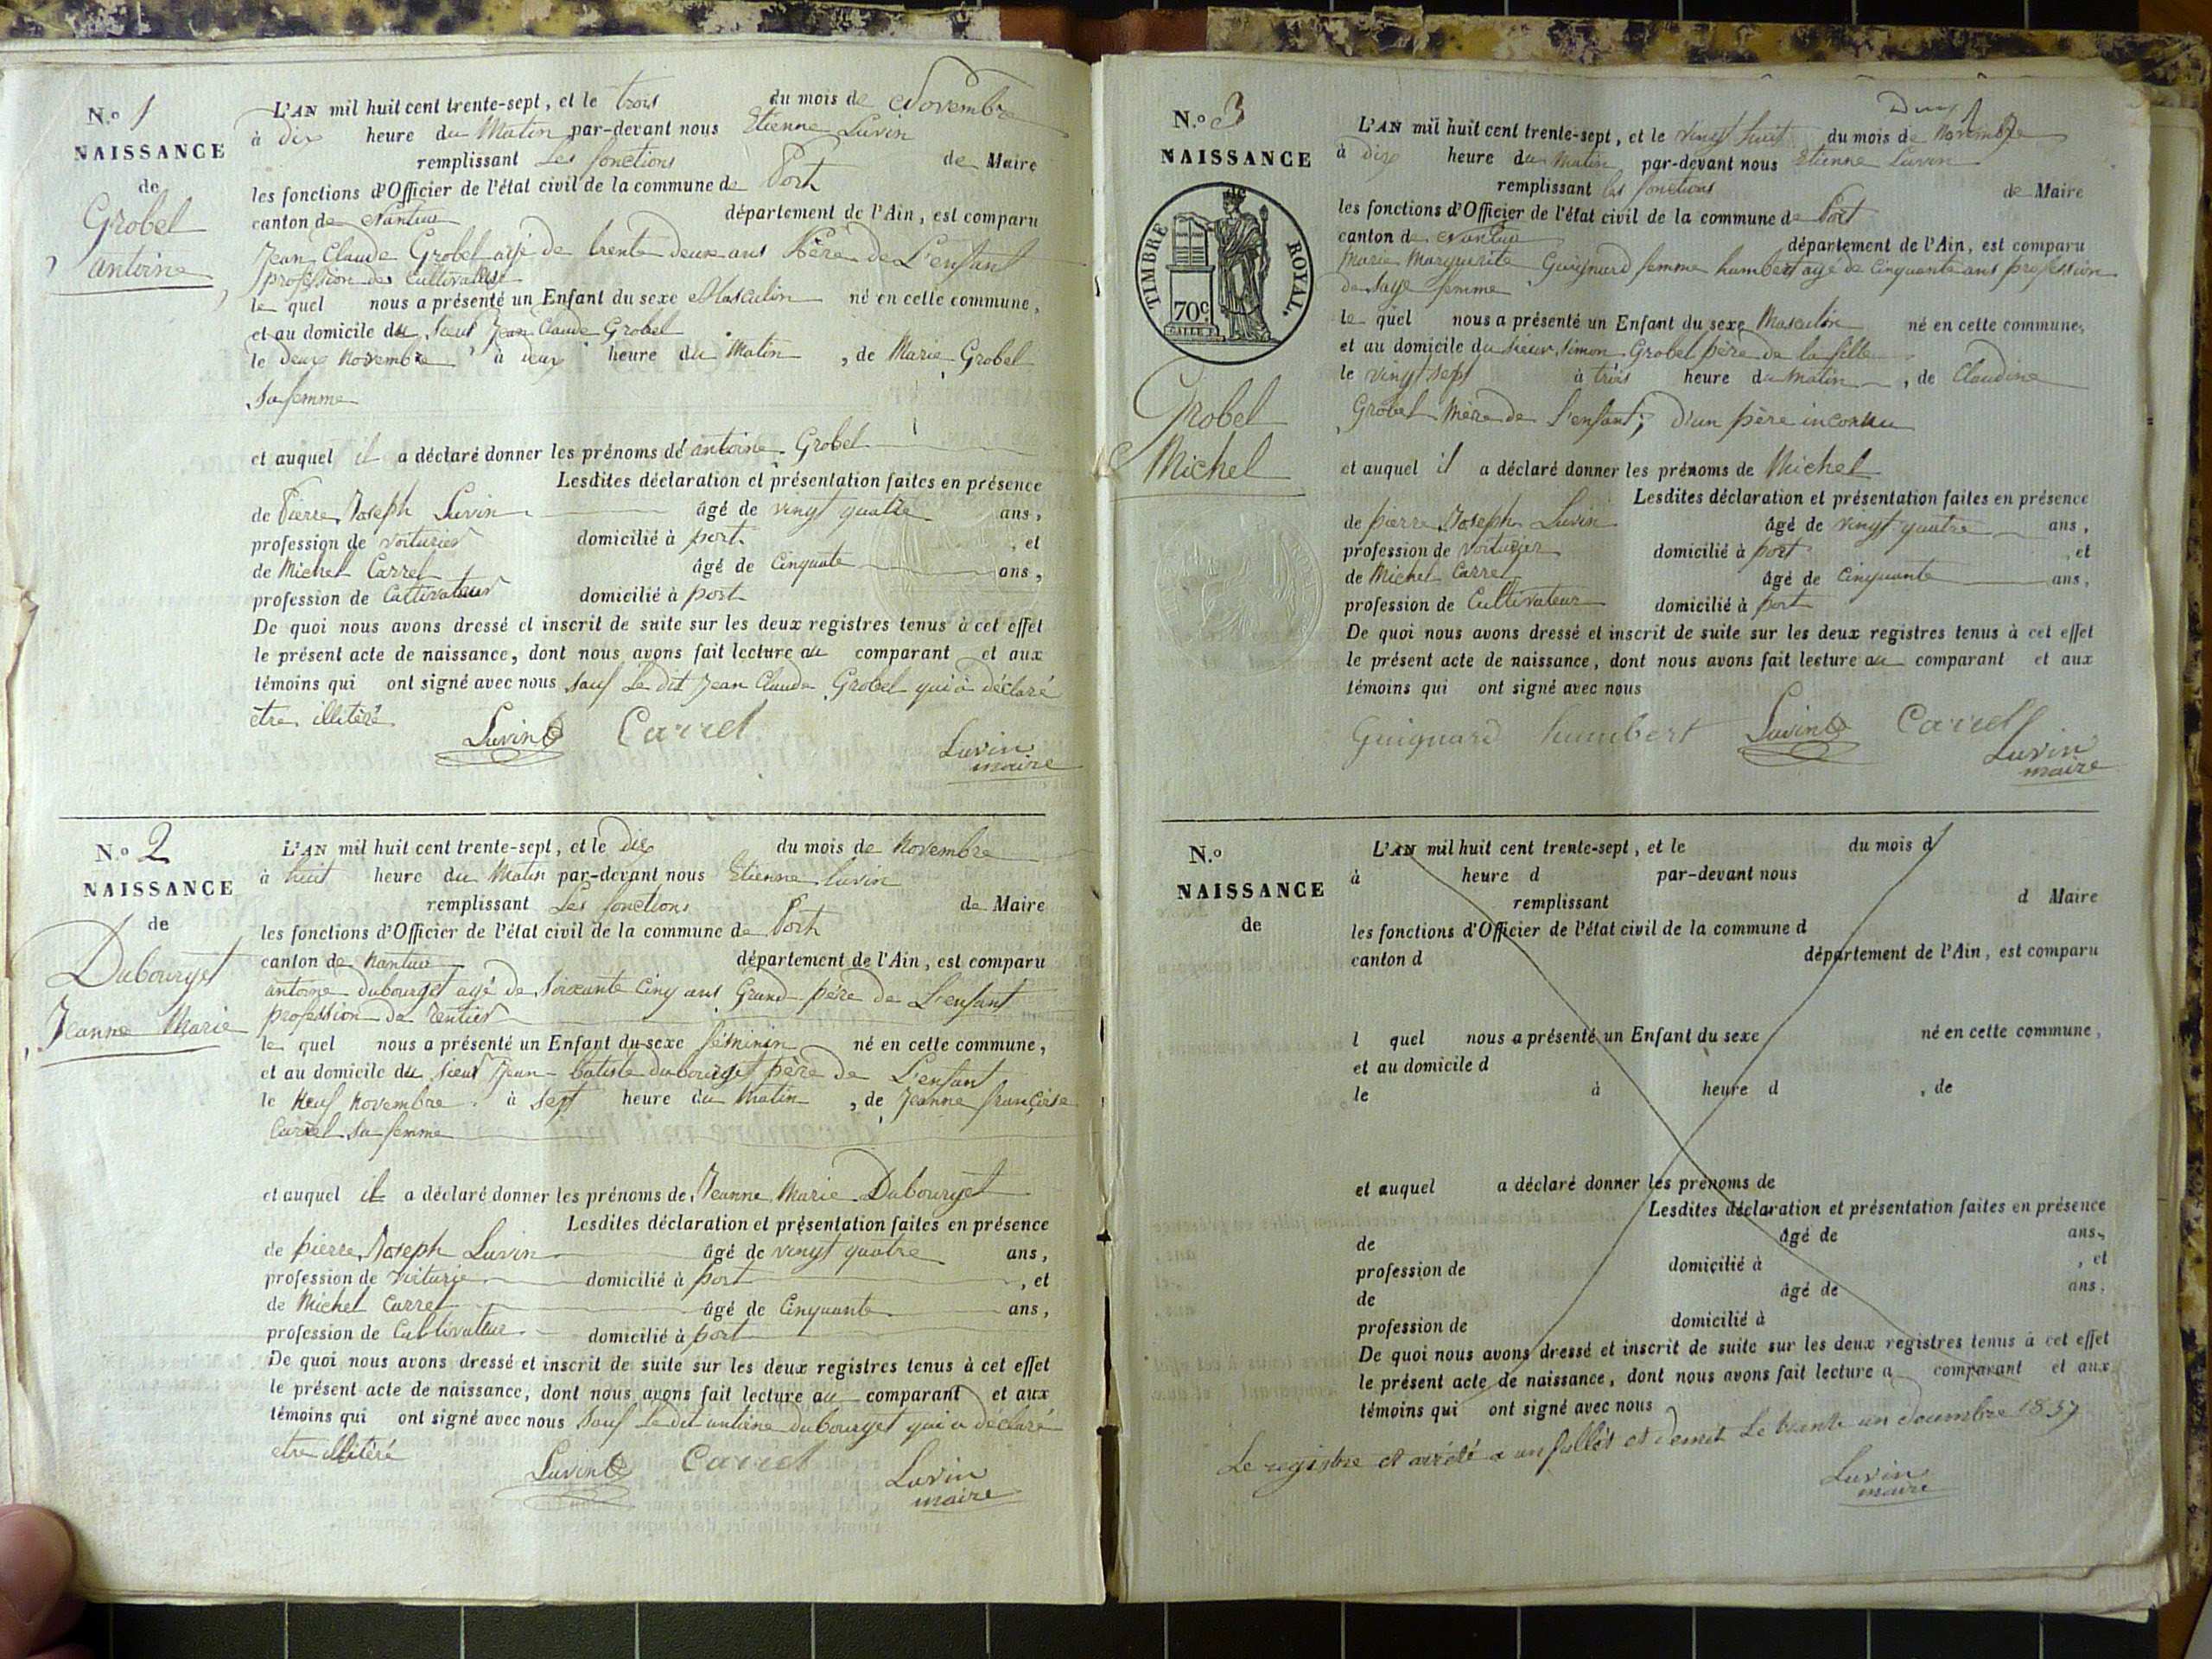 N.o 1
NAISSANCE
de
Grobel
antoine
L'AN mil huit cent trente-sept, et le trois du mois de Novembre
à dix heure du Matin par-devant nous Etienne Luvin
remplissant Les fonctions de Maire
les fonctions d'Officier de l'état civil de la commune de Port
canton de Nantua département de l'Ain, est comparu
Jean Claude Grobel agé de trente deux ans Père de L'enfant
profession de Cultivateur
le quel nous a présenté un Enfant du sexe Masculin né en cette commune,
et au domicile du sieur Jean Claude Grobel
le deux novembre à deux heure du Matin, de Marie Grobel
sa femme
et auquel il a déclaré donner les prénoms de antoine Grobel
Lesdites déclaration et présentation faites en présence
de Pierre Joseph Luvin âgé de vingt quatre ans,
profession de voiturier domicilié à port, et
de Michel Carrel âgé de Cinquate ans,
profession de Cultivateur domicilié à port
De quoi nous avons dressé et inscrit de suite sur les deux registres tenus à cet effet
le présent acte de naissance, dont nous avons fait lecture au comparant et aux
témoins qui ont signé avec nous sauf Le dit Jean Claude Grobel qui à déclaré
être illitéré
Luvin Carrel Luvin
maire
N.o 2
NAISSANCE
de
Dubourget
Jeanne Marie
L'AN mil huit cent trente-sept, et le dix du mois de Novembre
à huit heure du Matin par-devant nous Etienne Luvin
remplissant Les fonctions de Maire
les fonctions d'Officier de l'état civil de la commune de Port
canton de Nantua département de l'Ain, est comparu
antoine dubourget agé de soixante Cinq ans Grand père de L'enfant
profession de rentier
le quel nous a présenté un Enfant du sexe féminin né en cette commune,
et au domicile du sieur Jean-batiste dubourget père de L'enfant
le Neuf novembre à sept heure du Matin, de Jeanne françoise
Carrel sa femme
et auquel il a déclaré donner les prénoms de Jeanne Marie Dubourget
Lesdites déclaration et présentation faites en présence
de pierre Joseph Luvin âgé de vingt quatre ans,
profession de voiturie domicilié à port, et
de Michel Carrel âgé de Cinquante ans,
profession de Cultivateur domicilié à port
De quoi nous avons dressé et inscrit de suite sur les deux registres tenus à cet effet
le présent acte de naissance, dont nous avons fait lecture au comparant et aux
témoins qui ont signé avec nous sauf Le dit antoine dubourget qui a déclaré
etre illitéré
Luvin Carrel Luvin
maire
N.o 3
NAISSANCE
TIMBRE ROYAL
70c
Grobel
Michel
L'AN mil huit cent trente-sept, et le vingt huit du mois de Novembre
à dix heure du Matin par-devant nous Etienne Luvin
remplissant les fonctions de Maire
les fonctions d'Officier de l'état civil de la commune de Port
canton de Nantua département de l'Ain, est comparu
Marie Marguerite Guignard femme humbert agé de Cinquante ans profession
de sage femme
le quel nous a présenté un Enfant du sexe Masculin né en cette commune,
et au domicile du sieur Simon Grobel père de la fille
le vingt sept à trois heure du Matin, de Claudine
Grobel Mère de l'enfant; d'un père inconnu
et auquel il a déclaré donner les prénoms de Michel
Lesdites déclaration et présentation faites en présence
de pierre Joseph Luvin âgé de vingt quatre ans,
profession de voiturier domicilié à port, et
de Michel Carrel âgé de Cinquante ans,
profession de Cultivateur domicilié à port
De quoi nous avons dressé et inscrit de suite sur les deux registres tenus à cet effet
le présent acte de naissance, dont nous avons fait lecture au comparant et aux
témoins qui ont signé avec nous
Guignard humbert Luvin Carrel Luvin
maire
N.o
NAISSANCE
de
L'AN mil huit cent trente-sept, et le du mois d
à heure d par-devant nous
remplissant d Maire
les fonctions d'Officier de l'état civil de la commune d
canton d département de l'Ain, est comparu
l quel nous a présenté un Enfant du sexe né en cette commune,
et au domicile d
le à heure d, de
et auquel a déclaré donner les prénoms de
Lesdites déclaration et présentation faites en présence
de âgé de ans,
profession de domicilié à, et
de âgé de ans,
profession de domicilié à
De quoi nous avons dressé et inscrit de suite sur les deux registres tenus à cet effet
le présent acte de naissance, dont nous avons fait lecture a comparant et aux
témoins qui ont signé avec nous
Le registre et arrêté a un fullet et demit Le trante un decembre 1837
Luvin
maire